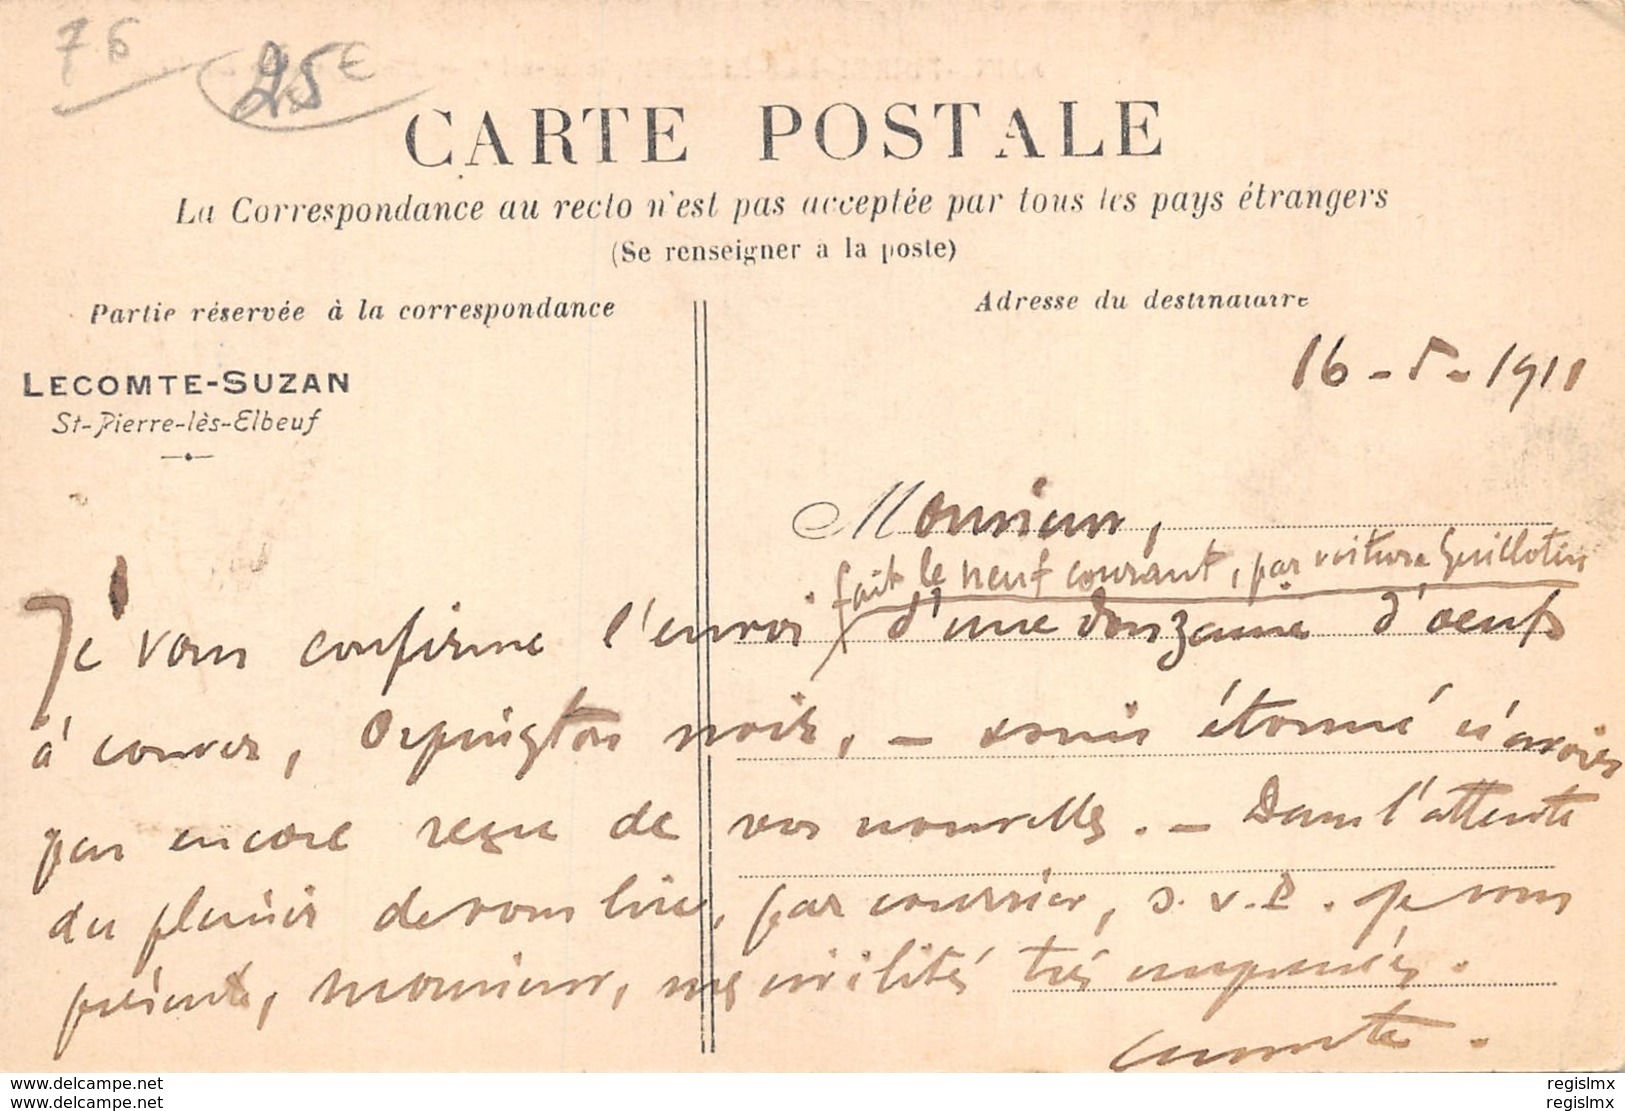 76
25€
CARTE POSTALE
La Correspondance au recto n'est pas acceptée par tous les pays étrangers
(Se renseigner à la poste)
Partie réservée à la correspondance
Adresse du destinataire
LECOMTE-SUZAN
St-Pierre-lès-Elbeuf
16-5-1911
Monsieur,
fait le neuf courant, par voiture Guillotin
Je vous confirme l'envoi d'une douzaine d'oeufs
à couver, Orpington noir, - suis étonné n'avoir
pas encore reçu de vos nouvelles. - Dans l'attente
du plaisir de vous lire, par courrier, s.v.p. je vous
présente, monsieur, mes civilités très empressées.
Lecomte.
www.delcampe.net
www.delcampe.net
regislmx
regislmx